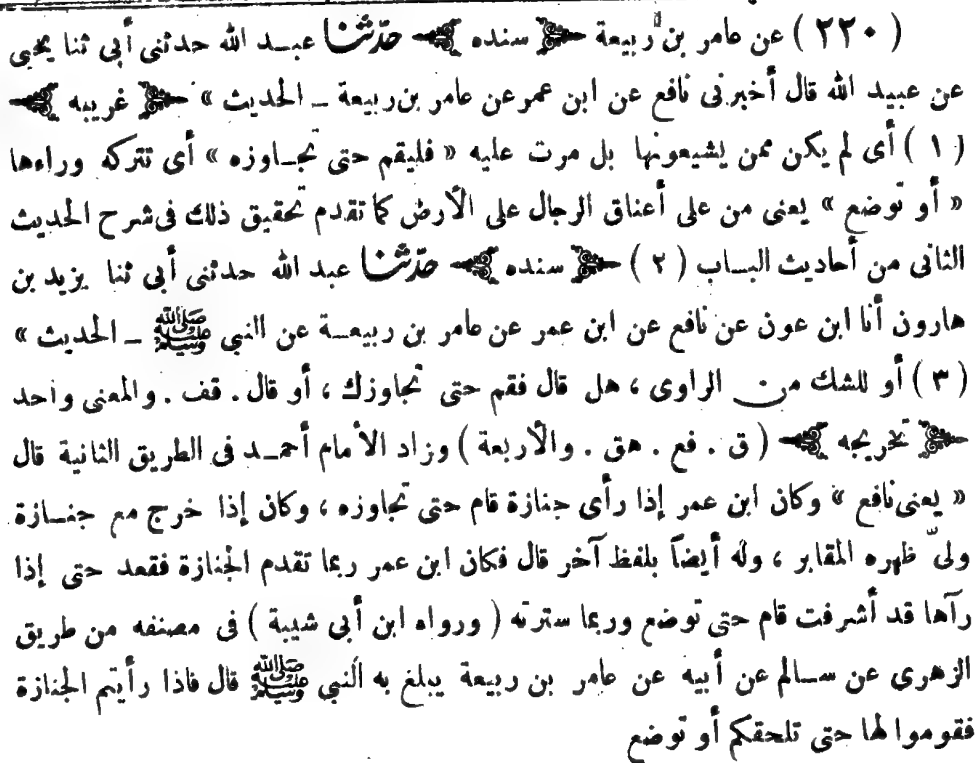 ( ٢٢٠ ) عن عامر بن ربيعة ﴿ سنده ﴾ حدّثنا عبد الله حدثنى أبى ثنا يحيى
عن عبيد الله قال أخبرنى نافع عن ابن عمر عن عامر بن ربيعة ــ الحديث » ﴿ غريبه ﴾
( ١ ) أى لم يكن ممن يشيعونها بل مرت عليه « فليقم حتى تجاوزه » أى تتركه وراءها
« أو توضع » يعنى من على أعناق الرجال على الأرض كما تقدم تحقيق ذلك فى شرح الحديث
الثانى من أحاديث الباب ( ٢ ) ﴿ سنده ﴾ حدّثنا عبد الله حدثنى أبى ثنا يزيد بن
هارون أنا ابن عون عن نافع عن ابن عمر عن عامر بن ربيعة عن النبي ﷺ ــ الحديث »
( ٣ ) أو للشك من الراوى ، هل قال فقم حتى تجاوزك ، أو قال . قف . والمعنى واحد
﴿ تخريجه ﴾ ( ق . فع . هق . والأربعة ) وزاد الأمام أحمد فى الطريق الثانية قال
« يعنى نافع » وكان ابن عمر إذا رأى جنازة قام حتى تجاوزه ، وكان إذا خرج مع جنازة
ولىّ ظهره المقابر ، وله أيضاً بلفظ آخر قال فكان ابن عمر ربما تقدم الجنازة فقعد حتى إذا
رآها قد أشرفت قام حتى توضع وربما سترته ( ورواه ابن أبى شيبة ) فى مصنفه من طريق
الزهرى عن سالم عن أبيه عن عامر بن ربيعة يبلغ به النبي ﷺ قال فاذا رأيتم الجنازة
فقوموا لها حتى تلحقكم أو توضع